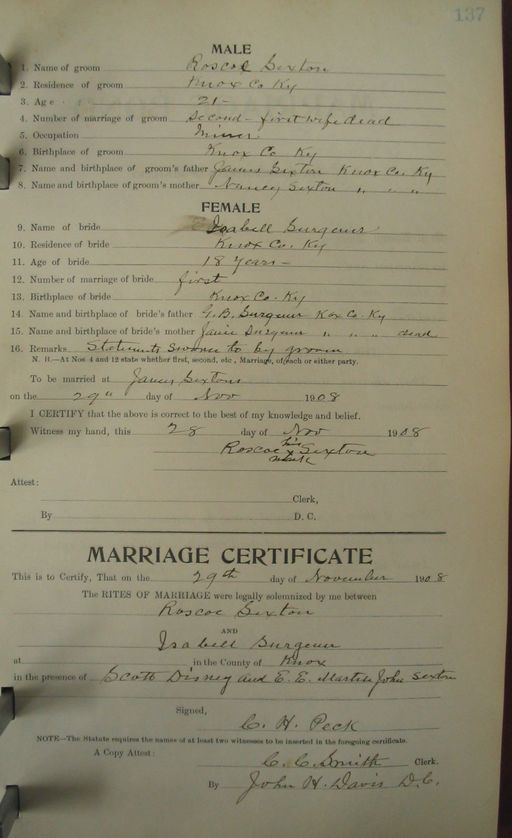 137
MALE
1. Name of groom Roscoe Sexton
2. Residence of groom Knox Co Ky
3. Age 21 -
4. Number of marriage of groom Second - first wife dead
5. Occupation Miner
6. Birthplace of groom Knox Co. Ky
7. Name and birthplace of groom's father James Sexton Knox Co. Ky
8. Name and birthplace of groom's mother Nancy Sexton " " "
FEMALE
9. Name of bride Isabell Surgener
10. Residence of bride Knox Co. Ky
11. Age of bride 18 years -
12. Number of marriage of bride first
13. Birthplace of bride Knox Co. Ky
14. Name and birthplace of bride's father G. B. Surgener Kox Co. Ky
15. Name and birthplace of bride's mother Surgener " " " dead
16. Remarks Statements sworn to by groom
N. B.—At Nos 4 and 12 state whether first, second, etc., Marriage, of each or either party.
To be married at James Sextons
on the 29th day of Nov 1908
I CERTIFY that the above is correct to the best of my knowledge and belief.
Witness my hand, this 28 day of Nov 1908
his
Roscoe x Sexton
mark
Attest:
Clerk,
By D. C.
MARRIAGE CERTIFICATE
This is to Certify, That on the 29th day of November 1908
The RITES OF MARRIAGE were legally solemnized by me between
Roscoe Sexton
AND
Isabell Surgener
at in the County of Knox
in the presence of Scott Disney and E. E. Martin John Sexton
Signed,
C. H. Peck
NOTE—The Statute requires the names of at least two witnesses to be inserted in the foregoing certificate.
A Copy Attest:
C. C. Smith Clerk.
By John H. Davis D.C.